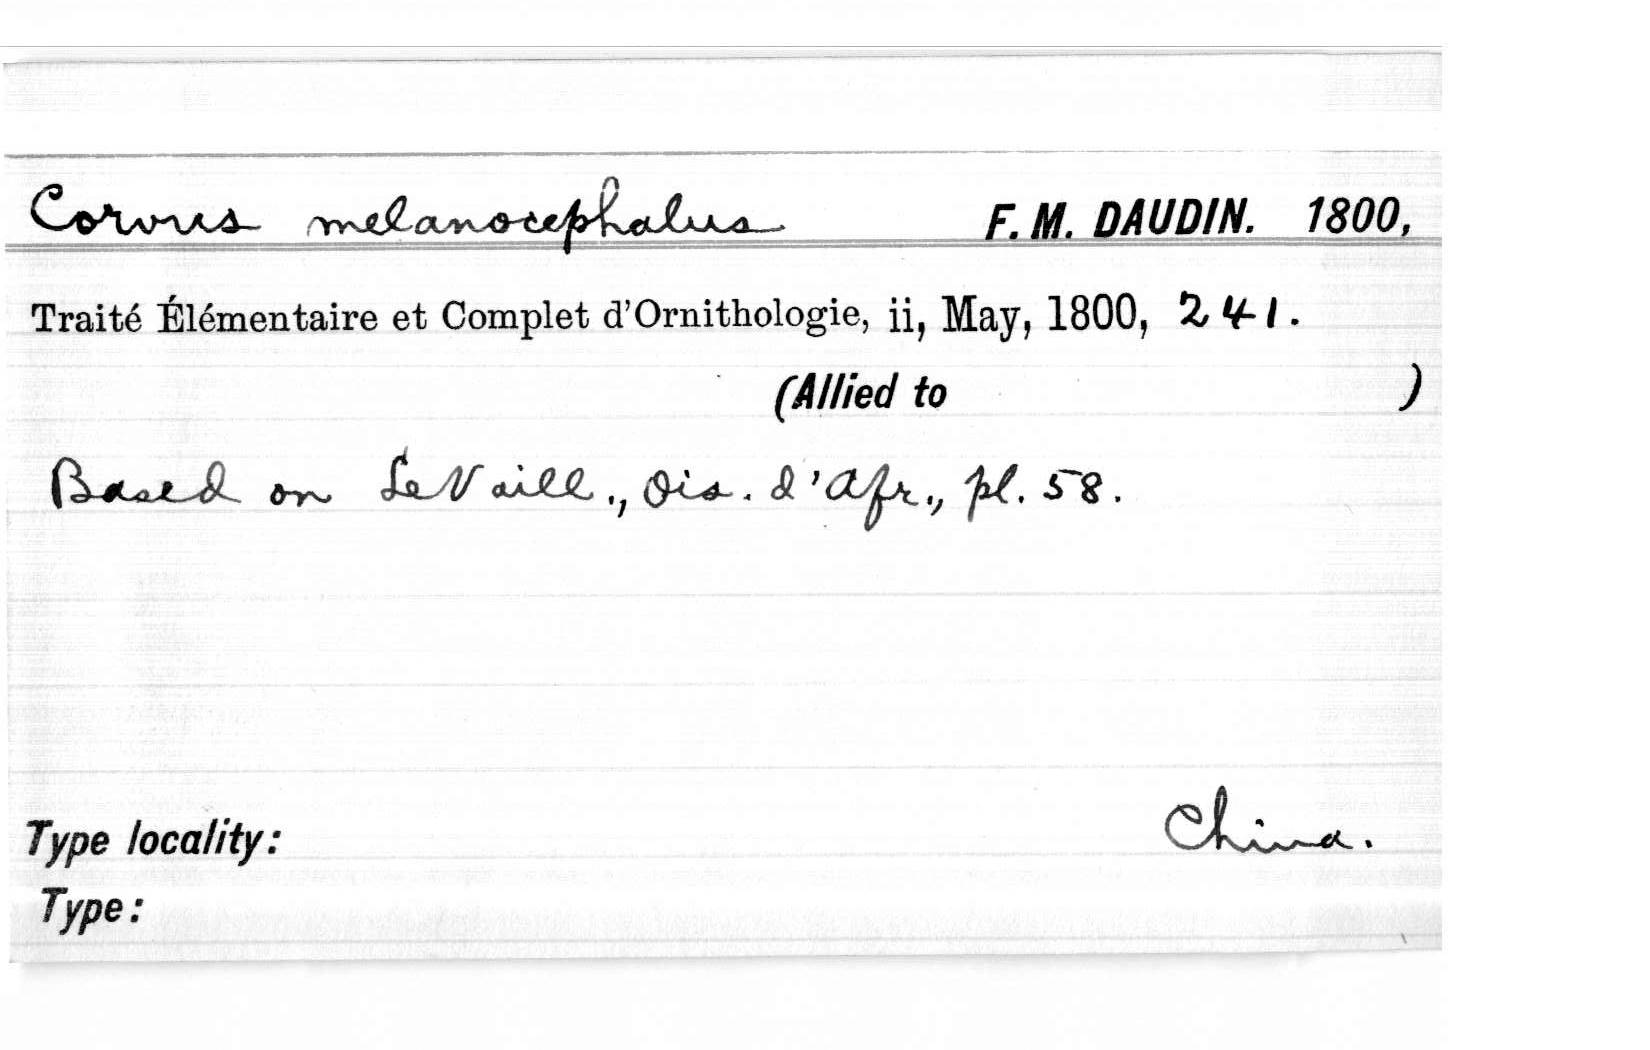 Corvus melanocephalus F. M. DAUDIN. 1800,
Traité Élémentaire et Complet d'Ornithologie, ii, May, 1800, 241.
(Allied to )
Based on LeVaill., Ois. d'Afr., pl. 58.
Type locality: China.
Type: